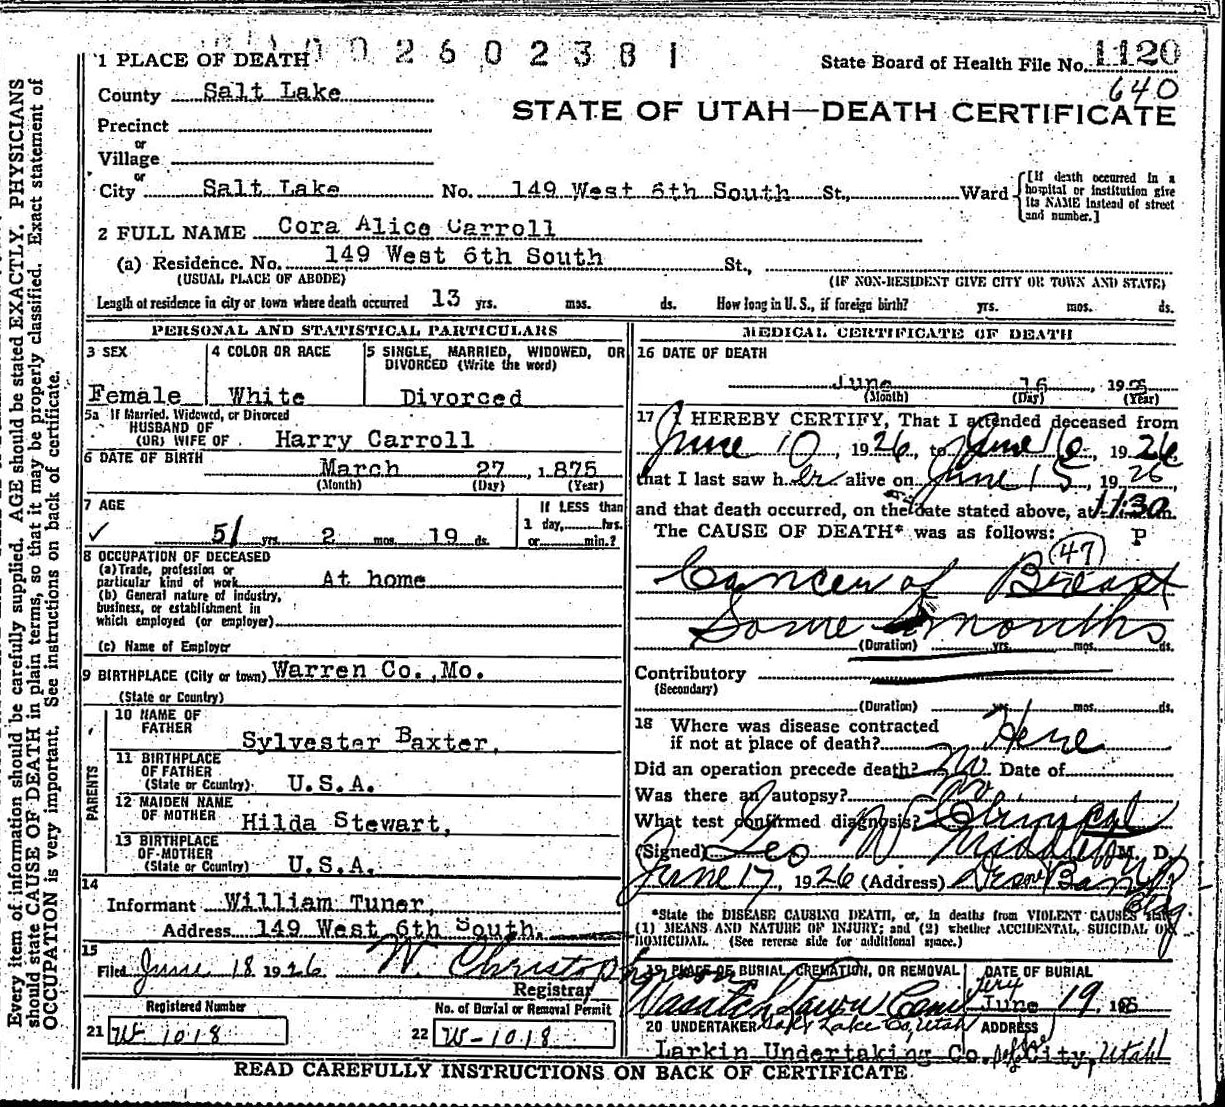 1 PLACE OF DEATH 0 0 2 6 0 2 3 8 1
State Board of Health File No. 1120
640
County Salt Lake
STATE OF UTAH—DEATH CERTIFICATE
Precinct
or
Village
or
City Salt Lake No. 149 West 6th South St., Ward
[If death occurred in a hospital or institution give its NAME instead of street and number.]
2 FULL NAME Cora Alice Carroll
(a) Residence. No. 149 West 6th South St.,
(USUAL PLACE OF ABODE) (IF NON-RESIDENT GIVE CITY OR TOWN AND STATE)
Length of residence in city or town where death occurred 13 yrs. mos. ds. How long in U. S., if foreign birth? yrs. mos. ds.
PERSONAL AND STATISTICAL PARTICULARS
3 SEX
Female
4 COLOR OR RACE
White
5 SINGLE, MARRIED, WIDOWED, OR DIVORCED (Write the word)
Divorced
5a If Married, Widowed, or Divorced
HUSBAND OF
(OR) WIFE OF Harry Carroll
6 DATE OF BIRTH
March 27 1875
(Month) (Day) (Year)
7 AGE
51 yrs. 2 mos. 19 ds.
If LESS than
1 day, hrs.
or min.?
8 OCCUPATION OF DECEASED
(a) Trade, profession or
particular kind of work At home
(b) General nature of industry,
business, or establishment in
which employed (or employer)
(c) Name of Employer
9 BIRTHPLACE (City or town) Warren Co., Mo.
(State or Country)
PARENTS
10 NAME OF
FATHER
Sylvester Baxter,
11 BIRTHPLACE
OF FATHER
(State or Country) U.S.A.
12 MAIDEN NAME
OF MOTHER
Hilda Stewart,
13 BIRTHPLACE
OF MOTHER
(State or Country) U.S.A.
14
Informant William Tuner,
Address 149 West 6th South.
15
Filed June 18 1926 W. Christopherson
Registrar
Registered Number
21 W-1018
No. of Burial or Removal Permit
22 W-1018
MEDICAL CERTIFICATE OF DEATH
16 DATE OF DEATH
June 16, 192
(Month) (Day) (Year)
17 I HEREBY CERTIFY, That I attended deceased from
June 10, 1926, to June 16, 1926,
that I last saw her alive on June 15, 1926,
and that death occurred, on the date stated above, at 11:30 m.
The CAUSE OF DEATH* was as follows: P
47
Cancer of Breast
Some months
(Duration) yrs. mos. ds.
Contributory
(Secondary)
(Duration) yrs. mos. ds.
18 Where was disease contracted
if not at place of death? Here
Did an operation precede death? No Date of
Was there an autopsy? No
What test confirmed diagnosis? Clinical
(Signed) Geo W Middleton M. D.
June 17, 1926 (Address) Bldg
*State the DISEASE CAUSING DEATH, or, in deaths from VIOLENT CAUSES state
(1) MEANS AND NATURE OF INJURY; and (2) whether ACCIDENTAL, SUICIDAL OR
HOMICIDAL. (See reverse side for additional space.)
19 PLACE OF BURIAL, CREMATION, OR REMOVAL
Wasatch Lawn Cem
Salt Lake Co, Utah
DATE OF BURIAL
June 19, 192
20 UNDERTAKER
ADDRESS
Larkin Undertaking Co., City, Utah
READ CAREFULLY INSTRUCTIONS ON BACK OF CERTIFICATE.
Every item of information should be carefully supplied. AGE should be stated EXACTLY. PHYSICIANS
should state CAUSE OF DEATH in plain terms, so that it may be properly classified. Exact statement of
OCCUPATION is very important. See instructions on back of certificate.